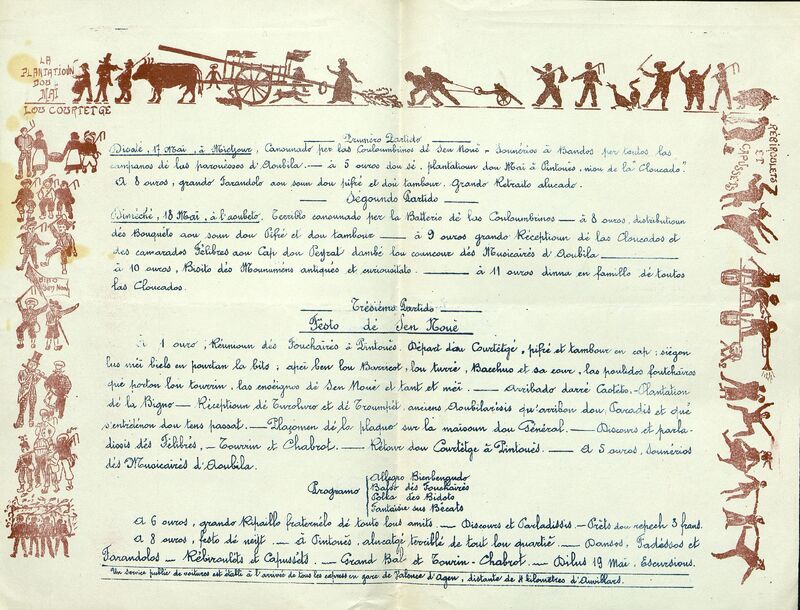 LA
PLANTATIOUN
DOU
MAÏ
LOU COURTETGE
REBIROULETS
ET
CAPUSSETS
BIBO
Sen Nouè
Prumèro Partido
Disate, 17 Mai, à Mietjour, Canounado per las Couloumbrinos de Sen Nouè - Sounérios à Bandos per toutos las
campanos de las parouessos d'Aoubila. — à 5 ouros dou sé, plantatioun dou Mai à Pintouès, niou de la "Cloucado".
A 8 ouros, grando Farandolo aou soun dou pifré et dou tambour. Grando Retraito alucado.
Ségoundo Partido
Dimeché, 18 Mai, à l'aoubeto. Terriblo canounado per la Batterio dé las Couloumbrinos — à 8 ouros, distributioun
dés Bouquéts aou soun dou Pifré et dou tambour — à 9 ouros grando Réceptioun dé las Cloucados et
des camarados Félibres aou Cap dou Peyrat dambé lou councour dés Musicaïrés d'Aoubila
à 10 ouros, Bisito dés Mounuméns antiqués et curiousitats. — à 11 ouros dinna en famillo dé toutos
las Cloucados.
Trésièmo Partido
Fèsto dé Sen Nouè
A 1 ouro, Réunioun dés Fouchaïrés à Pintouès. Départ dou Courtétgé, pifré et tambour en cap; siégon
lus méi biels en pourtan la bito; apèi ben lou Barricot, lou turrié, Bacchus et sa cour, las poulidos foutchairos
qué porton lou tourrin, las enseignos dé Sen Nouè et tant et méi. — Arribado darré Castéts. - Plantation
dé la Bigno — Réceptioun dé Turoluro et dé Troumpét, anciens Aoubilarésis qu'arribon dou Paradis et qué
s'entrédénon dou tens passat. — Plaçomen dé la plaquo sur la maisoun dou Général. — Discours et parla-
dissis dés Félibrés, — Tourrin et Chabrot. — Rétour dou Courtétgé à Pintouès. — A 5 ouros, Sounérios
dés Musicaïrés d'Aoubila.
Programo
Allegro Bienbengudo
Bafso dés Fouchaïrés
Polka dés Bidots
Fantaisie sus Bécats
A 6 ouros, grando Ripaillo fraternèlo dé touto lous amits. — Discours et Parladissis. — Prèts dou repech 3 frans.
A 8 ouros, festo dé neyt. — à Pintouès, alucatgé terriblé de tout lou quartié. — Dansos, Fadéssos et
Farandolos — Rébiroulèts et Capussèts. — Grand Bal et Tourrin-Chabrot. — Dilus 19 Mai, Escursions.
Un service public de voitures est établi à l'arrivée de tous les express en gare de Valence d'Agen, distante de 4 kilomètres d'Auvillars.